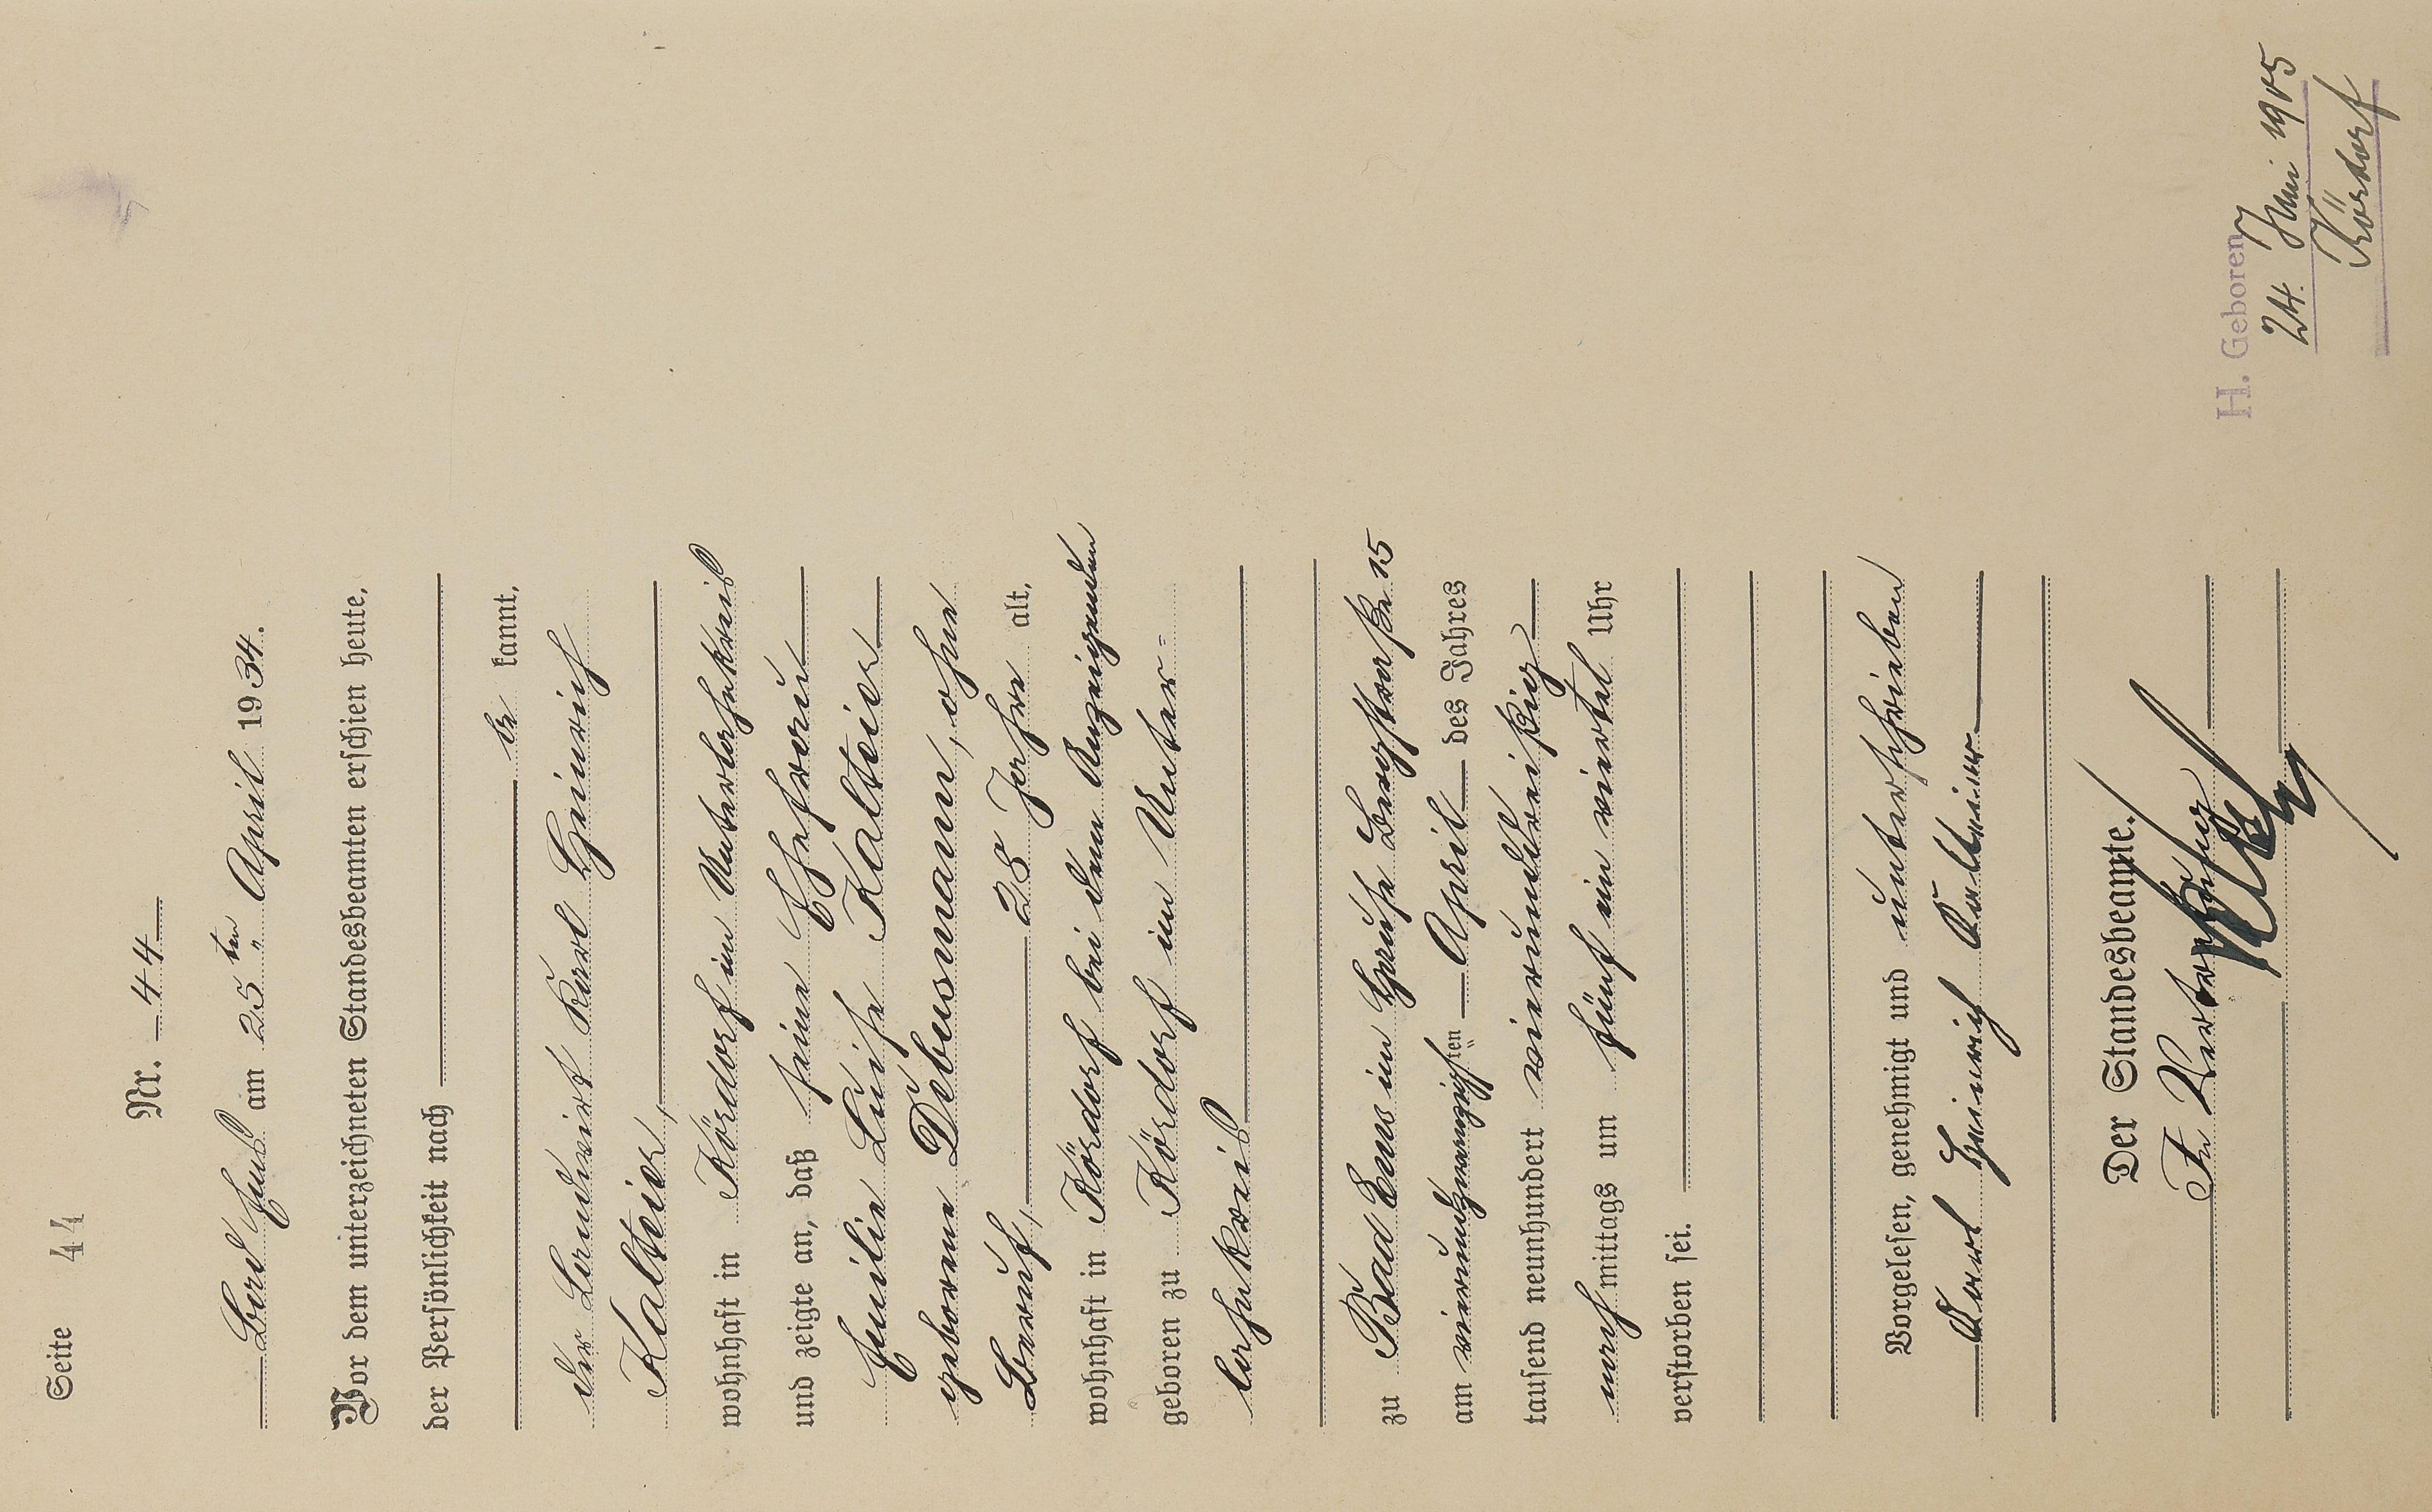 Seite 44
Nr. 44
Bad Ems am 25ten April 1934.
Vor dem unterzeichneten Standesbeamten erschien heute,
der Persönlichkeit nach
be kannt,
der Landwirt Karl Heinrich
Kalteier,
wohnhaft in Kördorf im Unterlahnkreis
und zeigte an, daß seine Ehefrau
Emilie Luise Kalteier
geborene Debusmann, ohne
Beruf, 28 Jahre alt,
wohnhaft in Kördorf bei dem Anzeigenden
geboren zu Kördorf im Unter-
lahnkreis
zu Bad Ems im Hause Bergstraße 15
am vierundzwanzigsten April des Jahres
tausend neunhundert vierunddreißig
nachmittags um fünf ein viertel Uhr
verstorben sei.
Vorgelesen, genehmigt und unterschrieben
Karl Heinrich Kalteier
Der Standesbeamte.
In Vertretung
H. Geboren
24. Juni 1905
Kördorf